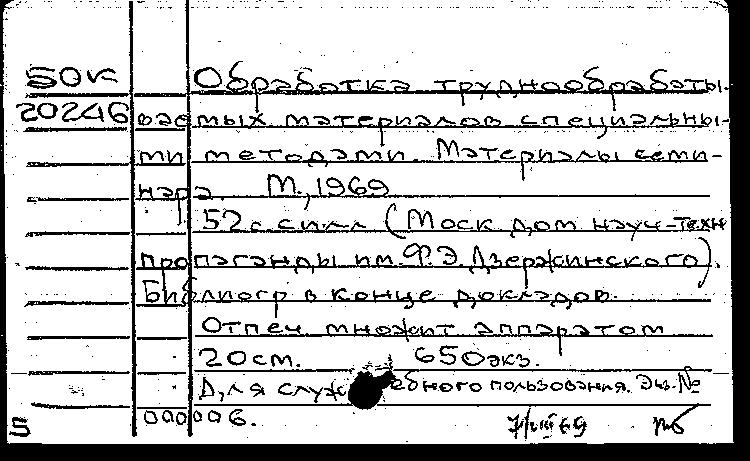 50к Обработка труднообрабаты-
20246 ваемых материалов специальны-
ми методами. Материалы семи-
нара. М., 1969
52 с. с илл. (Моск. дом науч.-техн.
пропаганды им. Ф.Э. Дзержинского).
Библиогр. в конце докладов.
Отпеч. множит. аппаратом
20 см. 650 экз.
Для служебного пользования. Экз. №
000006.
5 7/III 69